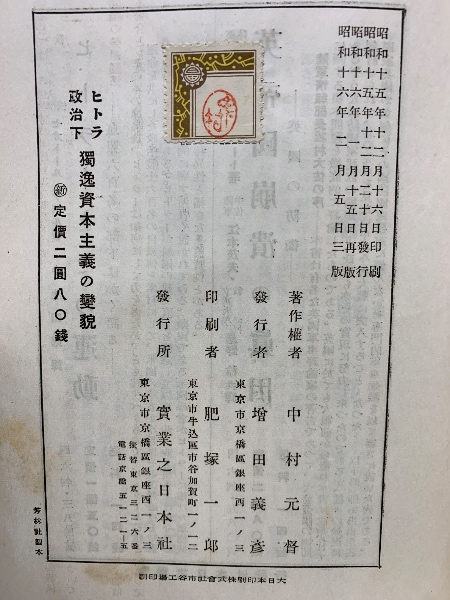 昭和十五年十二月十六日印刷
昭和十五年十二月二十日發行
昭和十六年一月十五日再版
昭和十六年二月五日三版
ヒトラ政治下
獨逸資本主義の變貌
新 定價二圓八〇錢
著作權者 中村元督
發行者 增田義彥
東京市京橋區銀座西一ノ三
印刷者 肥塚一郎
東京市牛込區市谷加賀町一ノ一二
發行所 實業之日本社
東京市京橋區銀座西一ノ三
振替東京三二六番
電話京橋五一二一—五
芳林社製本
大日本印刷株式會社市谷工場印刷